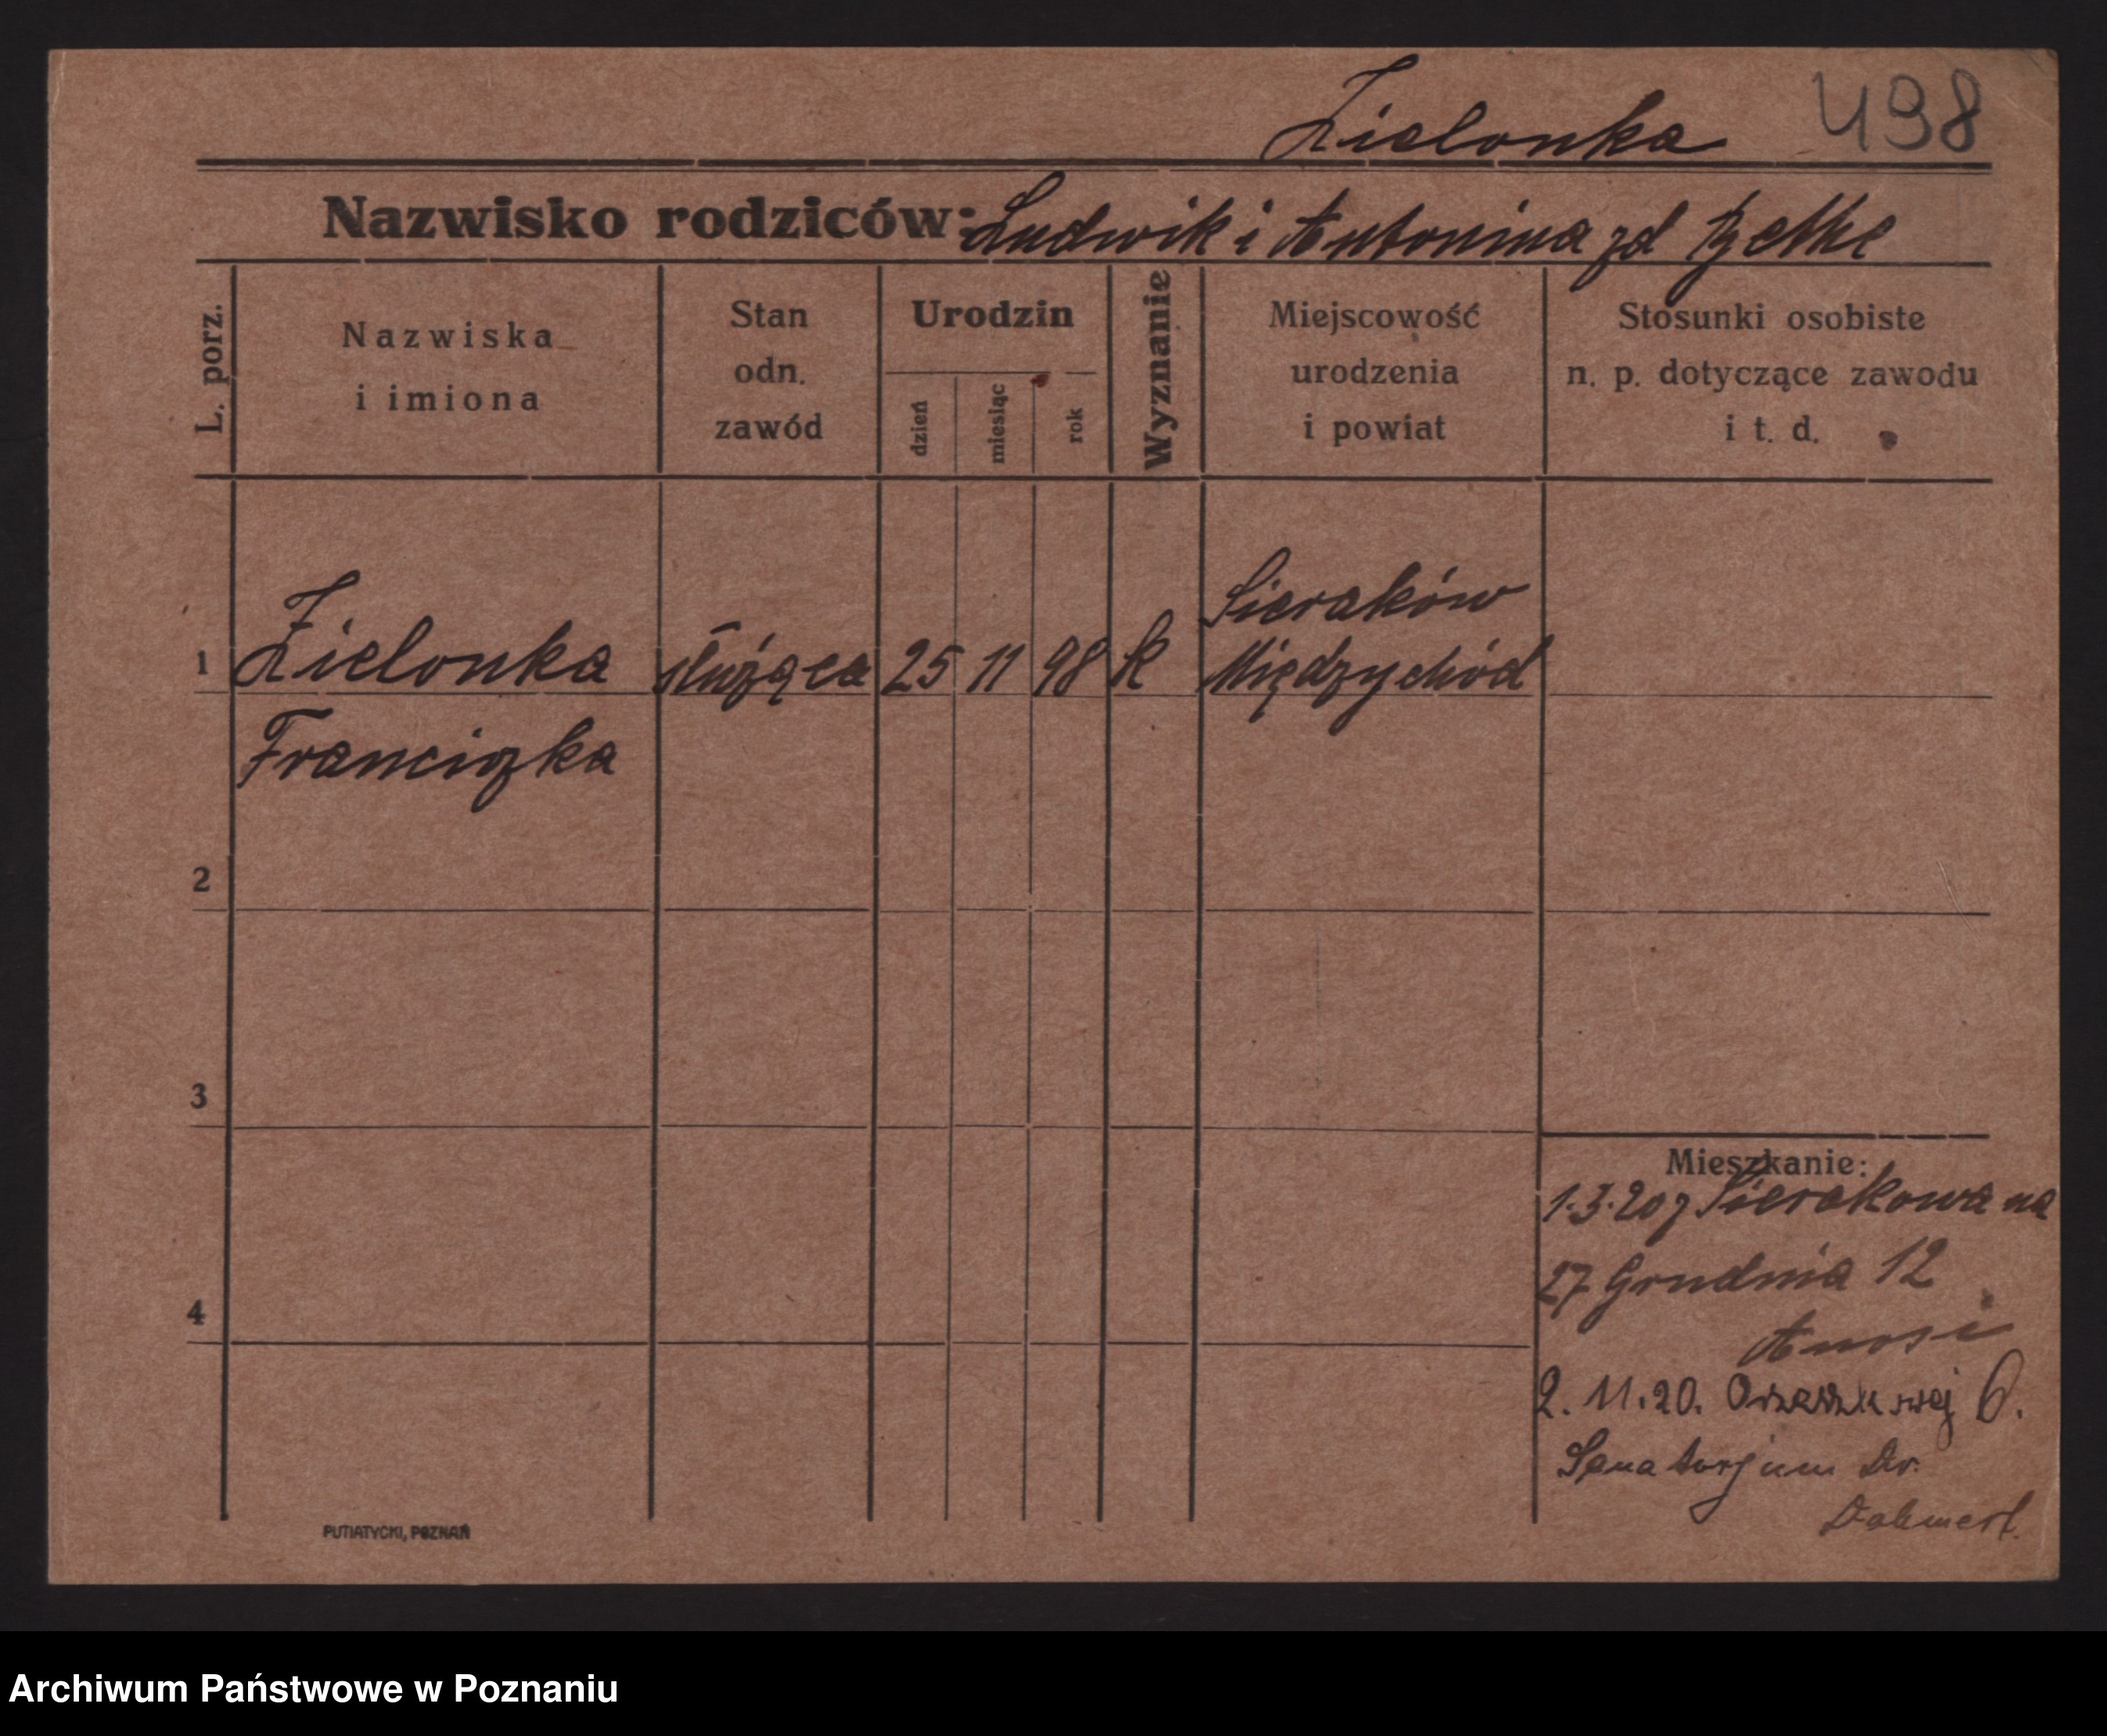 Zielonka 498
Nazwisko rodziców: Ludwik i Antonina zd
L. porz.
Nazwiska
i imiona
Stan
odn.
zawód
Urodzin
dzień
miesiąc
rok
Wyznanie
Miejscowość
urodzenia
i powiat
Stosunki osobiste
n. p. dotyczące zawodu
i t. d.
1 Zielonka służąca 25 11 98 k Sieraków
Międzychód
Franciszka
2
3
4
Mieszkanie:
1.3.20 z Sierakowa na
27 Grudnia 12
2. 11.20. Orzeszkowej 6.
Sanatorjum Dr.
PUTIATYCKI, POZNAŃ
Archiwum Państwowe w Poznaniu